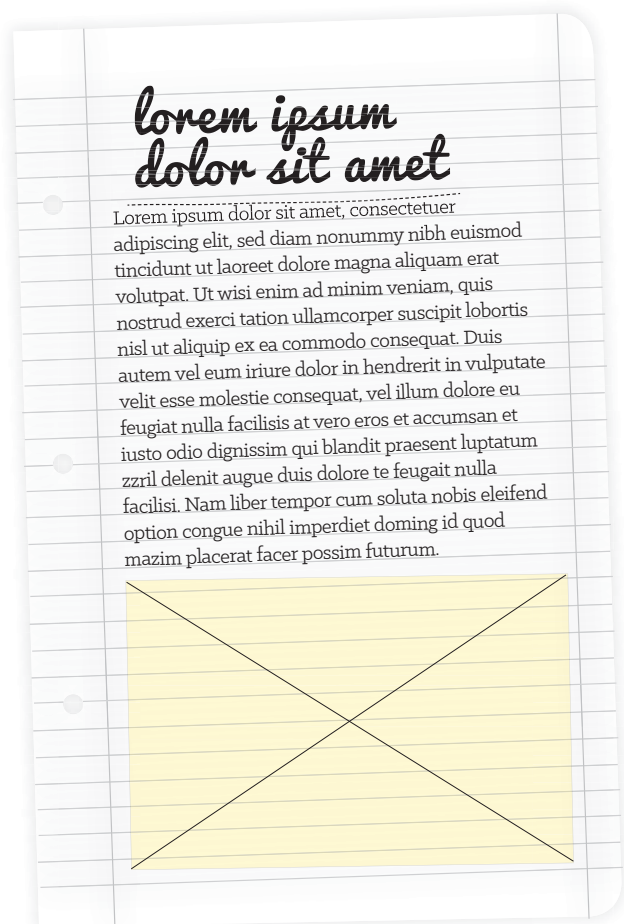 lorem ipsum
dolor sit amet
Lorem ipsum dolor sit amet, consectetuer
adipiscing elit, sed diam nonummy nibh euismod
tincidunt ut laoreet dolore magna aliquam erat
volutpat. Ut wisi enim ad minim veniam, quis
nostrud exerci tation ullamcorper suscipit lobortis
nisl ut aliquip ex ea commodo consequat. Duis
autem vel eum iriure dolor in hendrerit in vulputate
velit esse molestie consequat, vel illum dolore eu
feugiat nulla facilisis at vero eros et accumsan et
iusto odio dignissim qui blandit praesent luptatum
zzril delenit augue duis dolore te feugait nulla
facilisi. Nam liber tempor cum soluta nobis eleifend
option congue nihil imperdiet doming id quod
mazim placerat facer possim futurum.